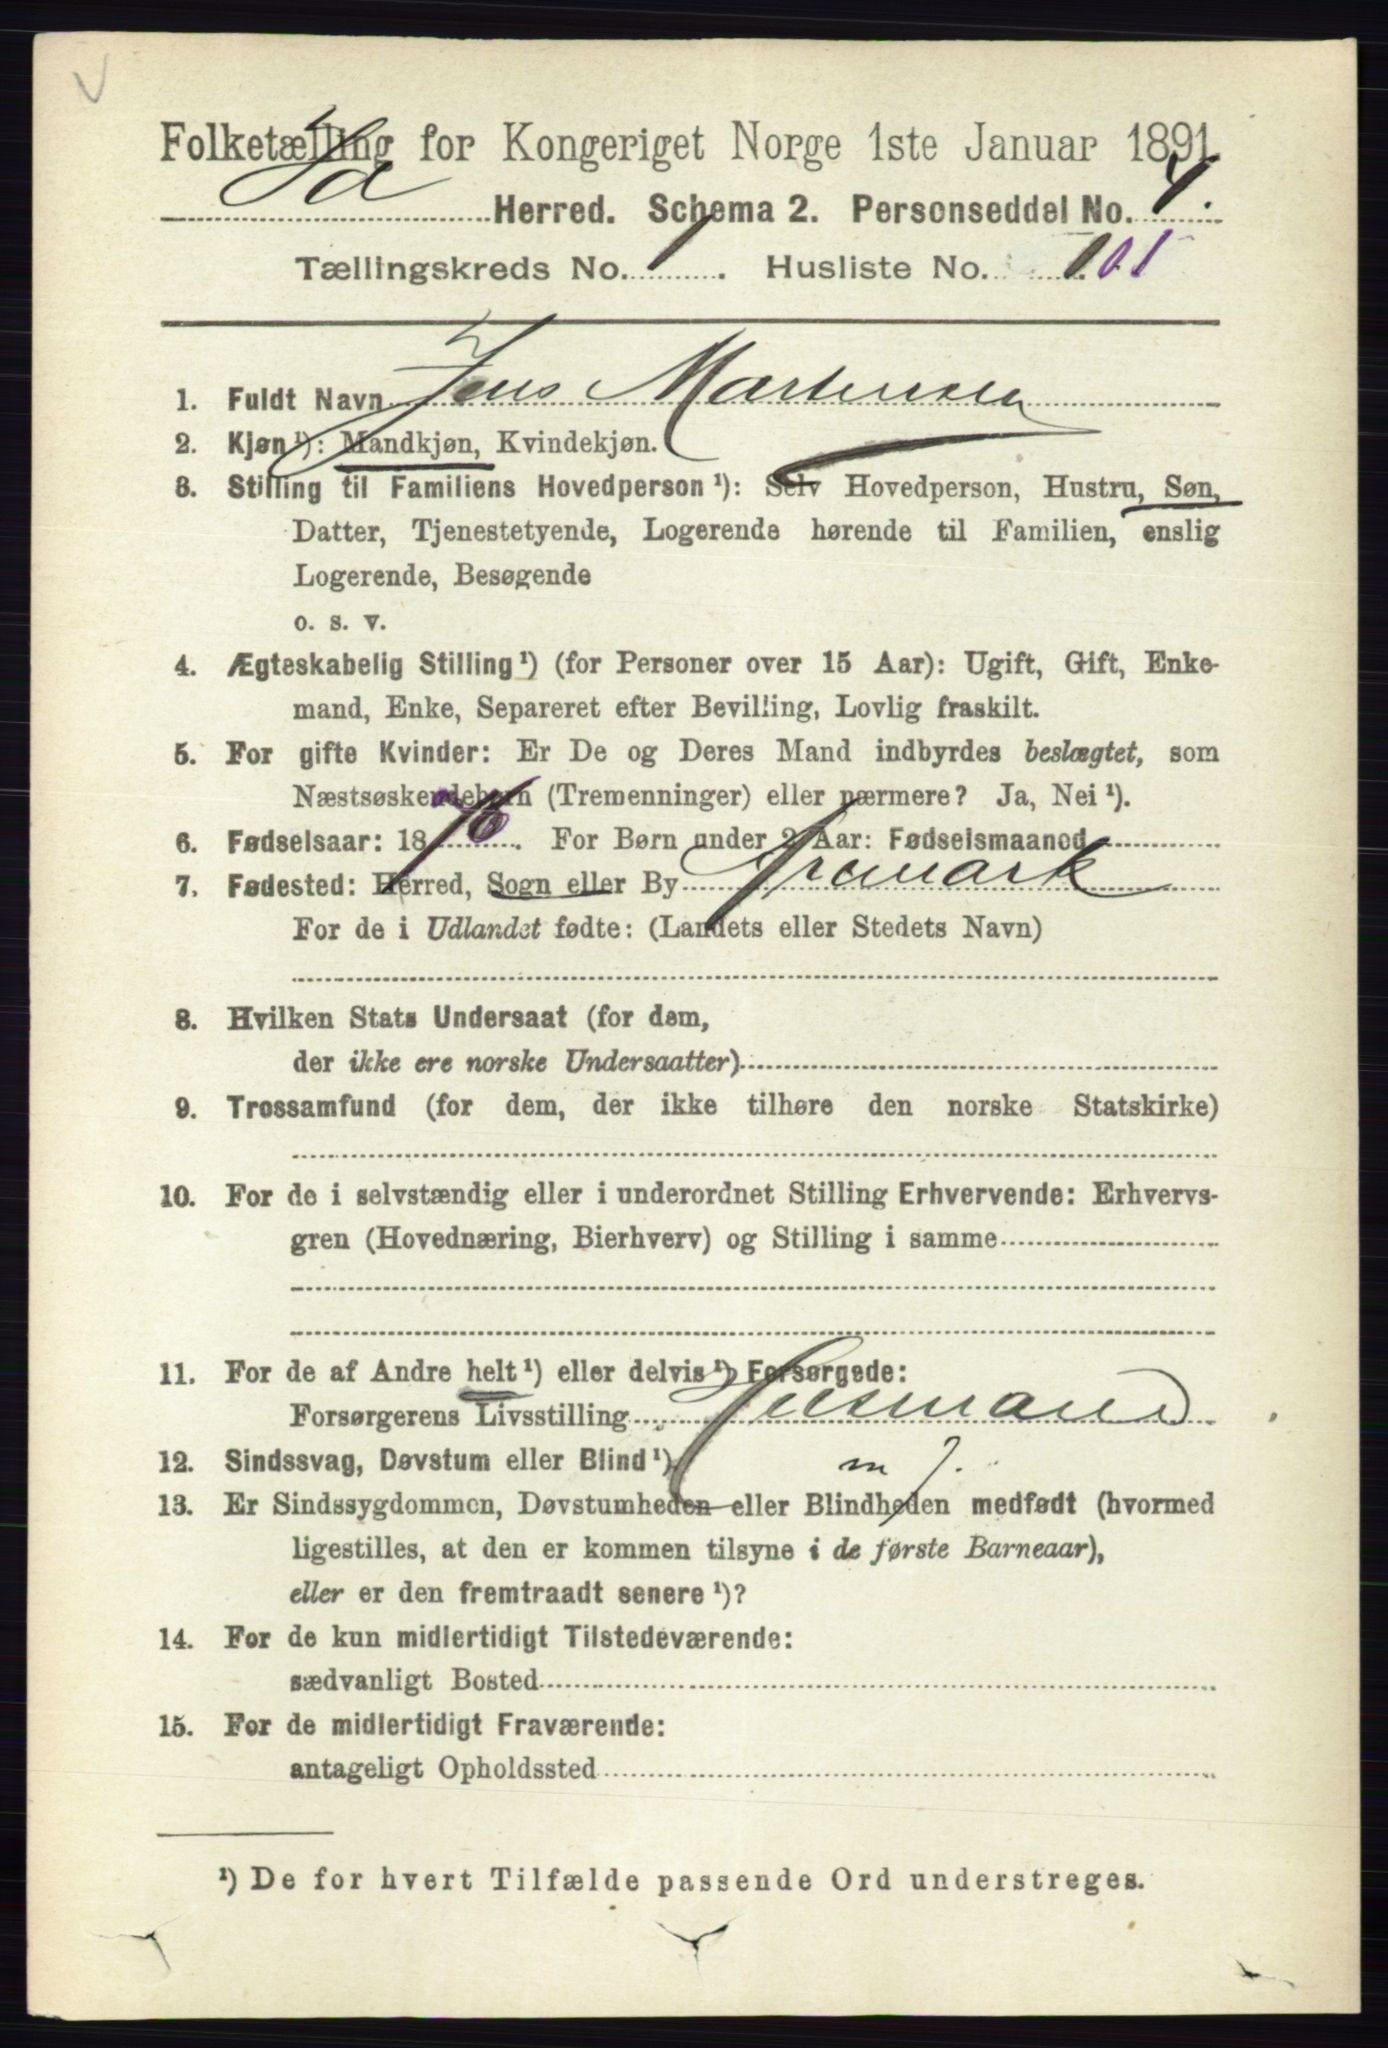 Folketælling for Kongeriget Norge 1ste Januar 1891.
Id Herred. Schema 2. Personseddel No. 4.
Tællingskreds No. 1. Husliste No. 101
1. Fuldt Navn Jens Martinsen
2. Kjøn¹): Mandkjøn, Kvindekjøn.
3. Stilling til Familiens Hovedperson¹): Selv Hovedperson, Hustru, Søn,
Datter, Tjenestetyende, Logerende hørende til Familien, enslig
Logerende, Besøgende
o. s. v.
4. Ægteskabelig Stilling¹) (for Personer over 15 Aar): Ugift, Gift, Enke-
mand, Enke, Separeret efter Bevilling, Lovlig fraskilt.
5. For gifte Kvinder: Er De og Deres Mand indbyrdes beslægtet, som
Næstsøskendebørn (Tremenninger) eller nærmere? Ja, Nei¹).
6. Fødselsaar: 1876. For Børn under 2 Aar: Fødselsmaaned
7. Fødested: Herred, Sogn eller By Aremark
For de i Udlandet fødte: (Landets eller Stedets Navn)
8. Hvilken Stats Undersaat (for dem,
der ikke ere norske Undersaatter)
9. Trossamfund (for dem, der ikke tilhøre den norske Statskirke)
10. For de i selvstændig eller i underordnet Stilling Erhvervende: Erhvervs-
gren (Hovednæring, Bierhverv) og Stilling i samme
11. For de af Andre helt¹) eller delvis¹) Forsørgede:
Forsørgerens Livsstilling Husmand
12. Sindssvag, Døvstum eller Blind¹).
13. Er Sindssygdommen, Døvstumheden eller Blindheden medfødt (hvormed
ligestilles, at den er kommen tilsyne i de første Barneaar),
eller er den fremtraadt senere¹)?
14. For de kun midlertidigt Tilstedeværende:
sædvanligt Bosted
15. For de midlertidigt Fraværende:
antageligt Opholdssted
¹) De for hvert Tilfælde passende Ord understreges.